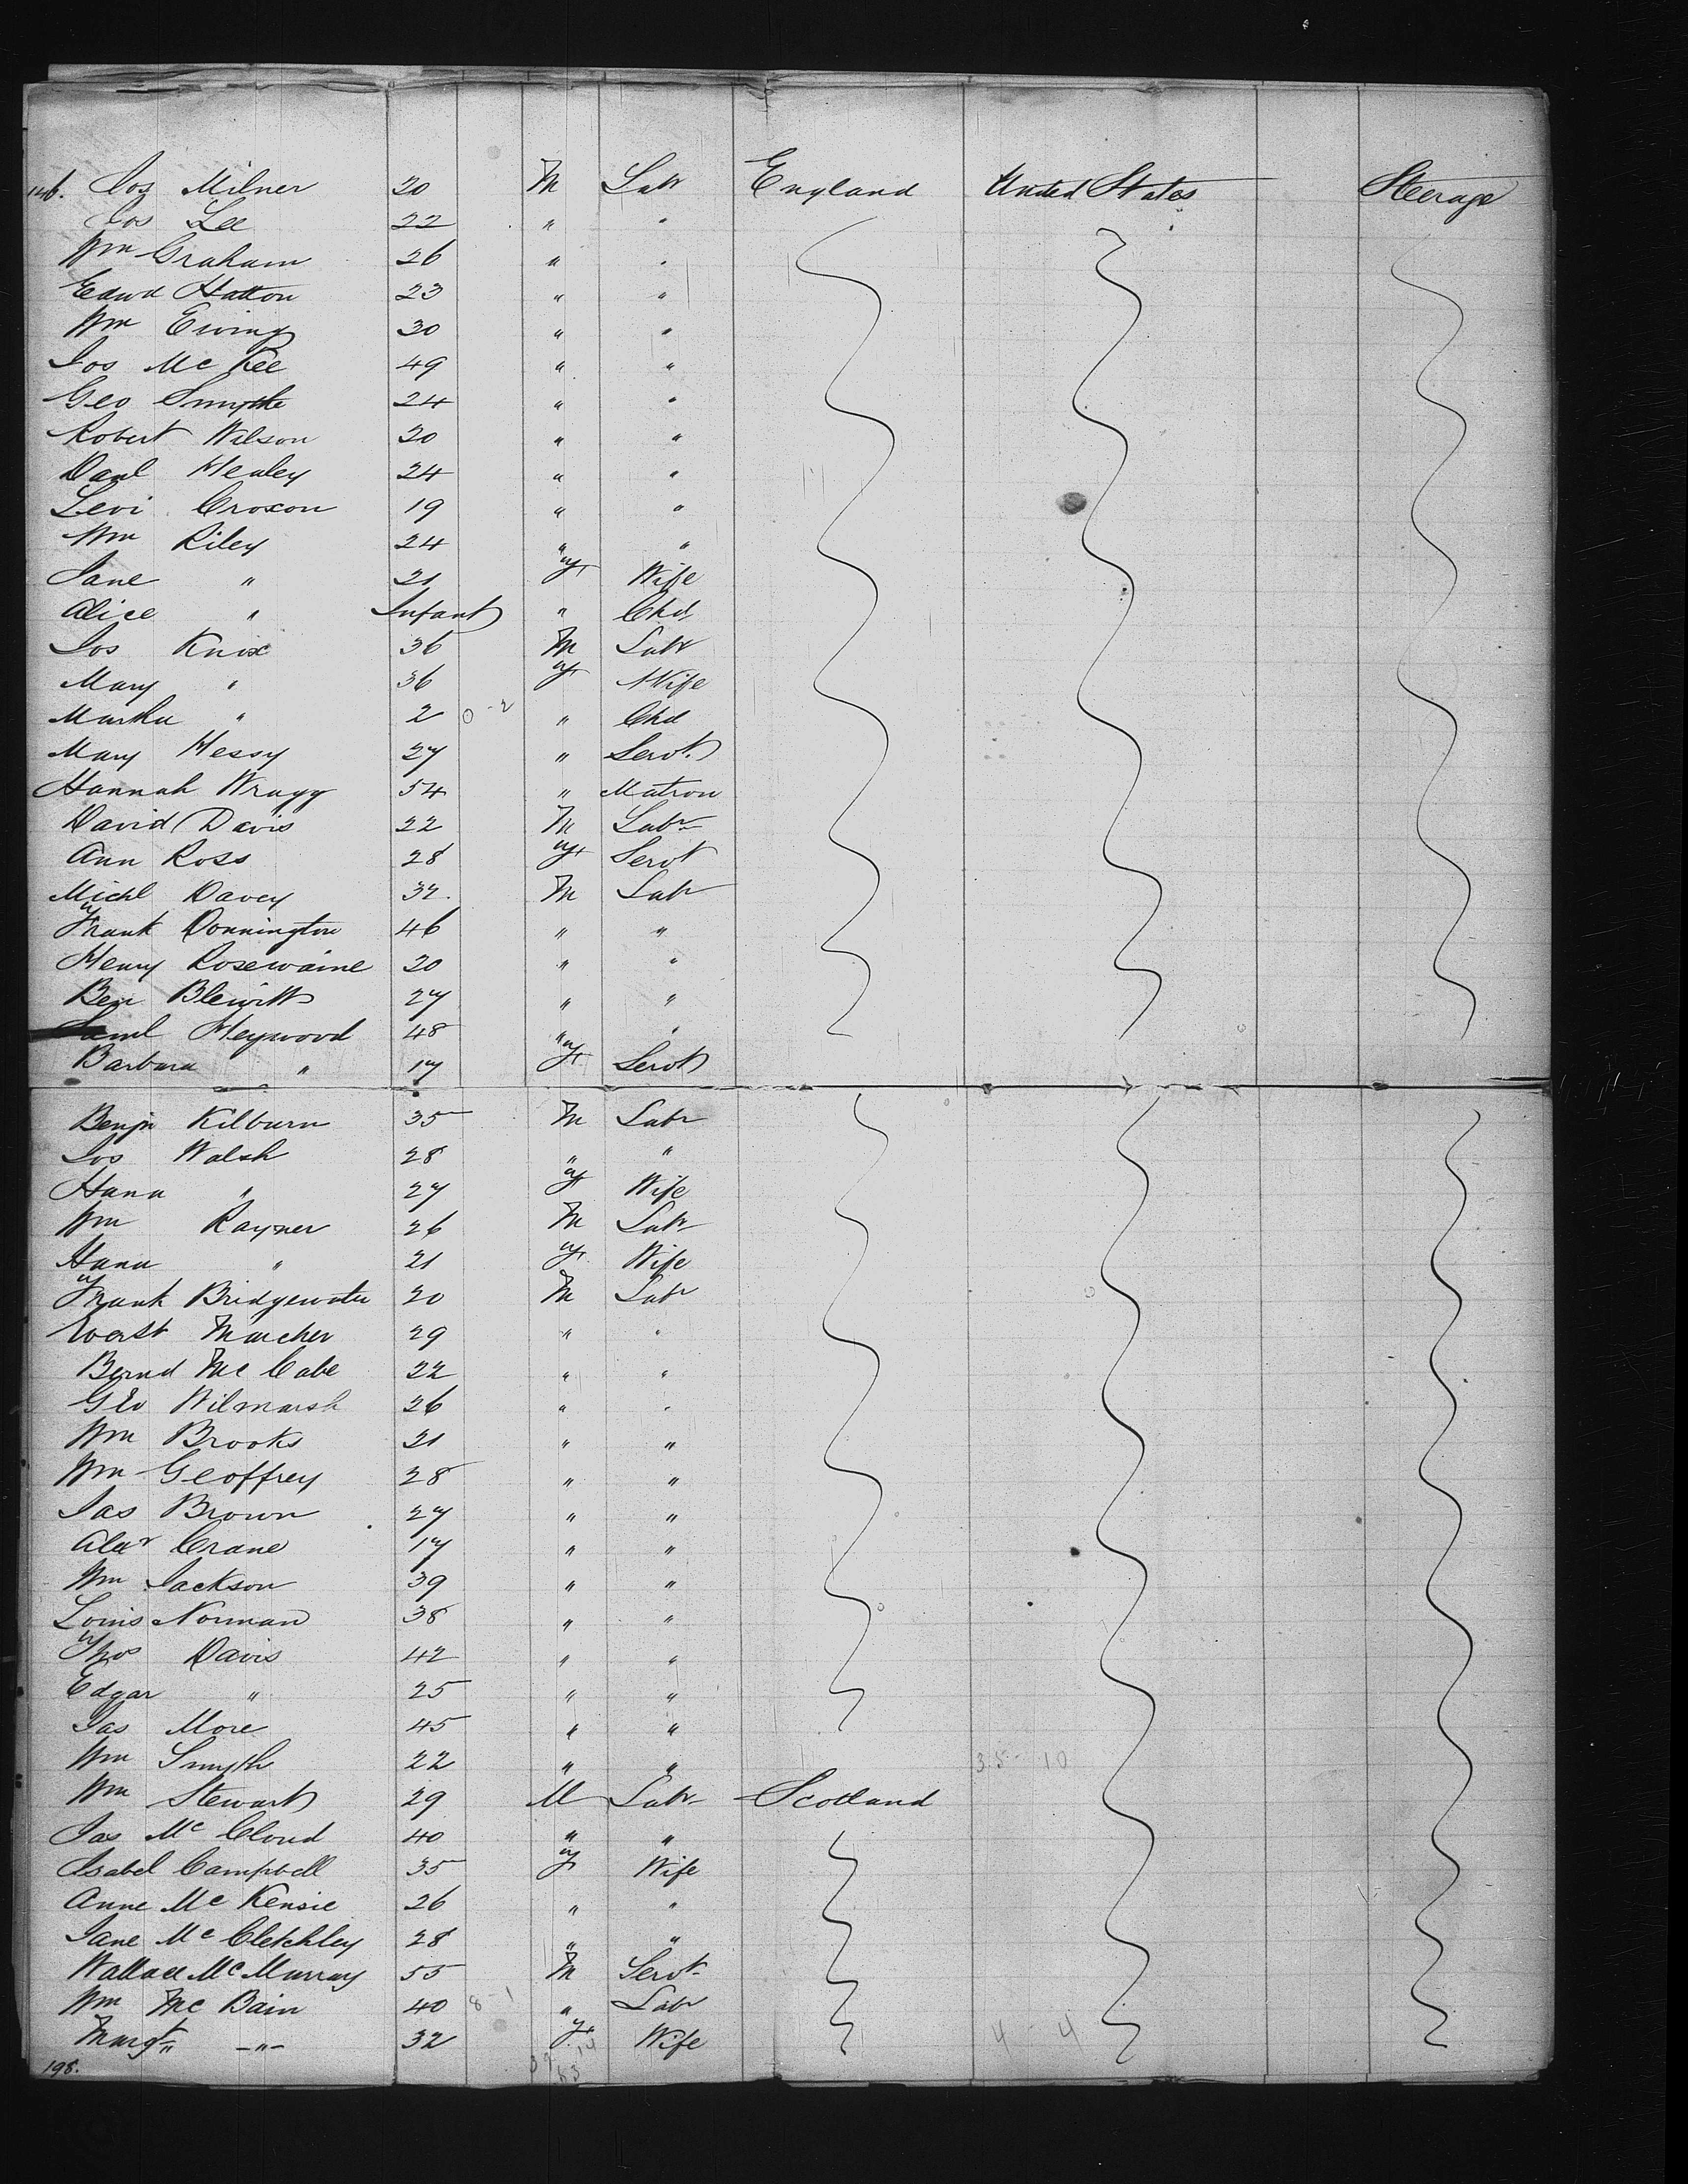 146. Jos Milner 20 M Labr England United States Steerage
Jos Lee 22 " "
Wm Graham 26 " "
Edwd Hatton 23 " "
Wm Ewing 30 " "
Jos Mc Kee 49 " "
Geo Smythe 24 " "
Robert Wilson 20 " "
Danl Healey 24 " "
Levi Croxon 19 " "
Wm Riley 24 " "
Jane " 21 F Wife
Alice " Infant " Chd
Jos Knox 36 M Labr
Mary " 36 F Wife
Martha " 2 0 - 2 " Chd
Mary Hessy 27 " Servt
Hannah Wragg 54 " Matron
David Davis 22 M Labr
Ann Ross 28 F Servt
Michl Davey 32 M Labr
Frank Donnington 46 " "
Henry Rosewaine 20 " "
Ben Blewitt 27 " "
Saml Heywood 48 " "
Barbara " 17 F Servt
Benjn Kilburn 35 M Labr
Jos Walsh 28 " "
Hana " 27 F Wife
Wm Rayner 26 M Labr
Hana " 21 F Wife
Frank Bridgewater 20 M Labr
Marcher 29 " "
Bernd Mc Cabe 22 " "
Geo Wilmarsh 26 " "
Wm Brooks 21 " "
Wm Geoffrey 28 " "
Jas Brown 27 " "
Alexr Crane 17 " "
Wm Jackson 39 " "
Louis Norman 38 " "
Thos Davis 42 " "
Edgar " 25 " "
Jas More 45 " "
Wm Smyth 22 " " 35 - 10
Wm Stewart 29 M Labr Scotland
Jas Mc Cloud 40 " "
Isabel Campbell 35 F Wife
Anne Mc Kensie 26 " "
Jane Mc Cletchley 28 " "
Wallace Mc Murray 55 M Servt
Wm Mc Bain 40 8 - 1 " Labr
Margt " -"- 32 F Wife 4 - 4
198.